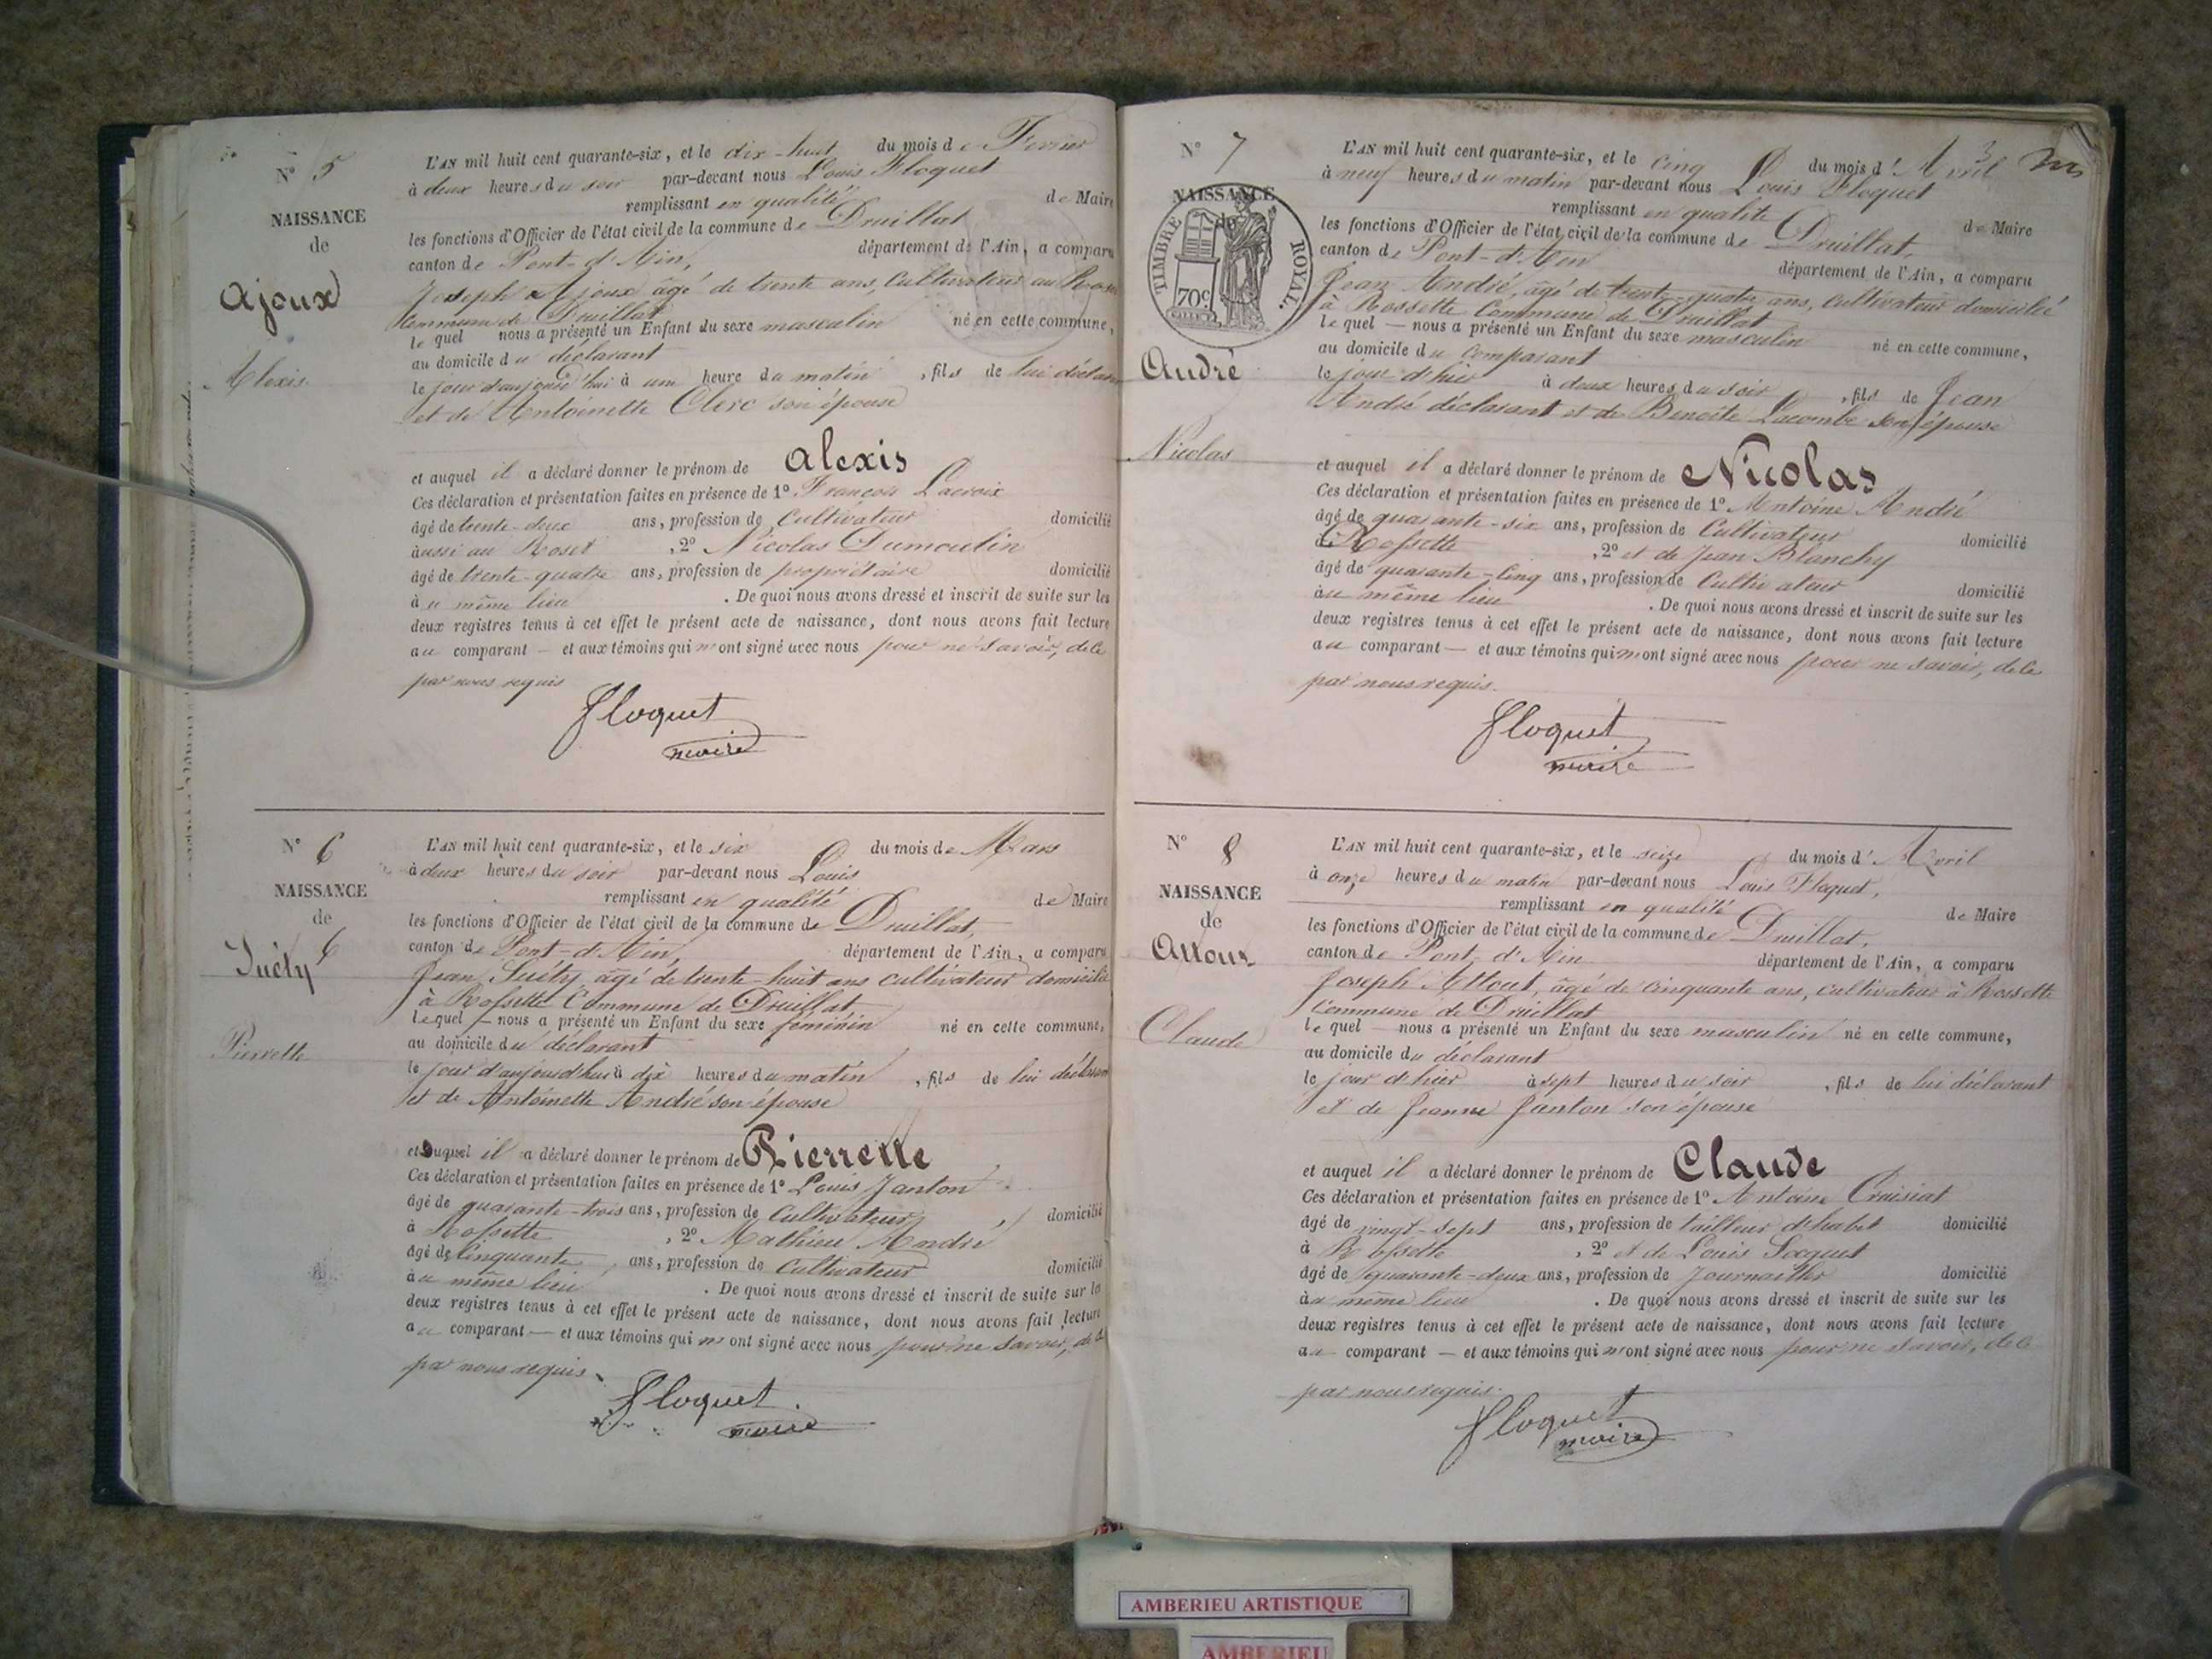 N° 5
NAISSANCE
de
Ajoux
Alexis
L'AN mil huit cent quarante-six, et le dix-huit du mois de Fevrier
à deux heures du soir par-devant nous Louis Floquet
remplissant en qualité de Maire
les fonctions d'Officier de l'état civil de la commune de Druillat
canton de Pont-d'Ain, département de l'Ain, a comparu
Joseph Ajoux âgé de trente ans, Cultivateur au
Commune de Druillat
le quel nous a présenté un Enfant du sexe masculin né en cette commune,
au domicile du déclarant
le jour d'aujourd'hui à une heure du matin, fils de lui déclarant
et de Antoinette Clerc son épouse
et auquel il a déclaré donner le prénom de Alexis
Ces déclaration et présentation faites en présence de 1° François Lacroix
âgé de trente-deux ans, profession de Cultivateur domicilié
aussi au Roset, 2° Nicolas Dumoulin
âgé de trente-quatre ans, profession de propriétaire domicilié
au même lieu. De quoi nous avons dressé et inscrit de suite sur les
deux registres tenus à cet effet le présent acte de naissance, dont nous avons fait lecture
au comparant — et aux témoins qui n'ont signé avec nous pour ne savoir, de ce
par nous requis
Floquet
maire
N° 6
NAISSANCE
de
6
Suety
Pierrette
L'AN mil huit cent quarante-six, et le six du mois de Mars
à deux heures du soir par-devant nous Louis
remplissant en qualité de Maire
les fonctions d'Officier de l'état civil de la commune de Druillat,
canton de Pont-d'Ain, département de l'Ain, a comparu
Jean Suety, âgé de trente-huit ans cultivateur domicilié
à Rossette Commune de Druillat
le quel — nous a présenté un Enfant du sexe féminin né en cette commune,
au domicile du déclarant
le jour d'aujourd'hui à dix heures du matin, fils de lui déclarant
et de Antoinette André son épouse
et auquel il a déclaré donner le prénom de Pierrette
Ces déclaration et présentation faites en présence de 1° Louis Janton
âgé de quarante-trois ans, profession de Cultivateur domicilié
à Rossette, 2° Mathieu André
âgé de Cinquante ans, profession de Cultivateur domicilié
au même lieu. De quoi nous avons dressé et inscrit de suite sur les
deux registres tenus à cet effet le présent acte de naissance, dont nous avons fait lecture
au comparant — et aux témoins qui n'ont signé avec nous pour ne savoir, de ce
par nous requis
Floquet
maire
3
N° 7
NAISSANCE
TIMBRE ROYAL.
70c
André
Nicolas
L'AN mil huit cent quarante-six, et le Cinq du mois d'Avril
à neuf heures du matin par-devant nous Louis Floquet
remplissant en qualité de Maire
les fonctions d'Officier de l'état civil de la commune de Druillat,
canton de Pont-d'Ain département de l'Ain, a comparu
Jean André, âgé de trente-quatre ans, cultivateur domicilié
à Rossette Commune de Druillat
le quel — nous a présenté un Enfant du sexe masculin né en cette commune,
au domicile du Comparant
le jour d'hier à deux heures du soir, fils de Jean
André déclarant et de Benoite Lacombe son épouse
et auquel il a déclaré donner le prénom de Nicolas
Ces déclaration et présentation faites en présence de 1° Antoine André
âgé de quarante-six ans, profession de Cultivateur domicilié
à Rossette, 2° et de Jean Blanchy
âgé de quarante-cinq ans, profession de Cultivateur domicilié
au même lieu. De quoi nous avons dressé et inscrit de suite sur les
deux registres tenus à cet effet le présent acte de naissance, dont nous avons fait lecture
au comparant — et aux témoins qui n'ont signé avec nous pour ne savoir, de ce
par nous requis.
Floquet
maire
N° 8
NAISSANCE
de
Claude
L'AN mil huit cent quarante-six, et le seize du mois d'Avril
à onze heures du matin par-devant nous Louis Floquet,
remplissant en qualité de Maire
les fonctions d'Officier de l'état civil de la commune de Druillat,
canton de Pont-d'Ain département de l'Ain, a comparu
Joseph âgé de Cinquante ans, cultivateur à Rossette
Commune de Druillat
le quel — nous a présenté un Enfant du sexe masculin né en cette commune,
au domicile du déclarant
le jour d'hier à sept heures du soir, fils de lui déclarant
et de Jeanne Janton son épouse
et auquel il a déclaré donner le prénom de Claude
Ces déclaration et présentation faites en présence de 1° Antoine Cruisiat
âgé de vingt-sept ans, profession de tailleur d'habit domicilié
à Rossette, 2° et de Louis
âgé de quarante-deux ans, profession de Journailler domicilié
au même lieu. De quoi nous avons dressé et inscrit de suite sur les
deux registres tenus à cet effet le présent acte de naissance, dont nous avons fait lecture
au comparant — et aux témoins qui n'ont signé avec nous pour ne savoir, de ce
par nous requis.
Floquet
maire
AMBERIEU ARTISTIQUE
AMBERIEU